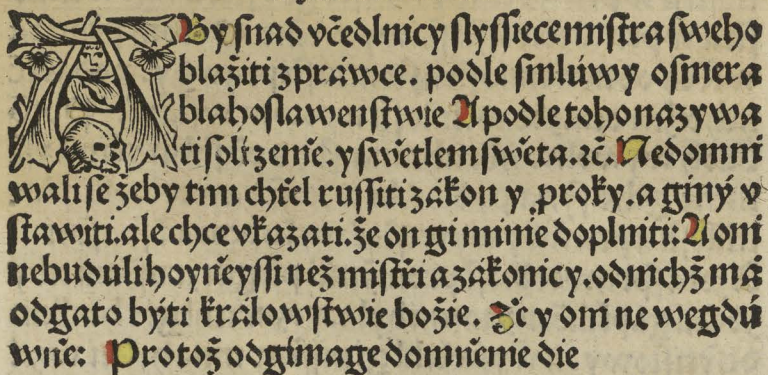 ABy snad včedlnicy slyssiece mistra sweho
blažiti zpráwce. podle smlúwy osmera
blahoslawenstwie A podle toho nazywa
ti solí zemie. y swětlem swěta. ⁊č. Nedomni
wali se žeby tim chtěl russiti zákon y proky. a giný v
stawiti. ale chce vkazati. že on gi minie doplniti: A oni
nebudúli hoyněyssi než mistři a zákonicy. od nichž má
odgato býti králowstwie božie. ⁊č y oni ne wegdú
wně: Protož odgimage domněnie die